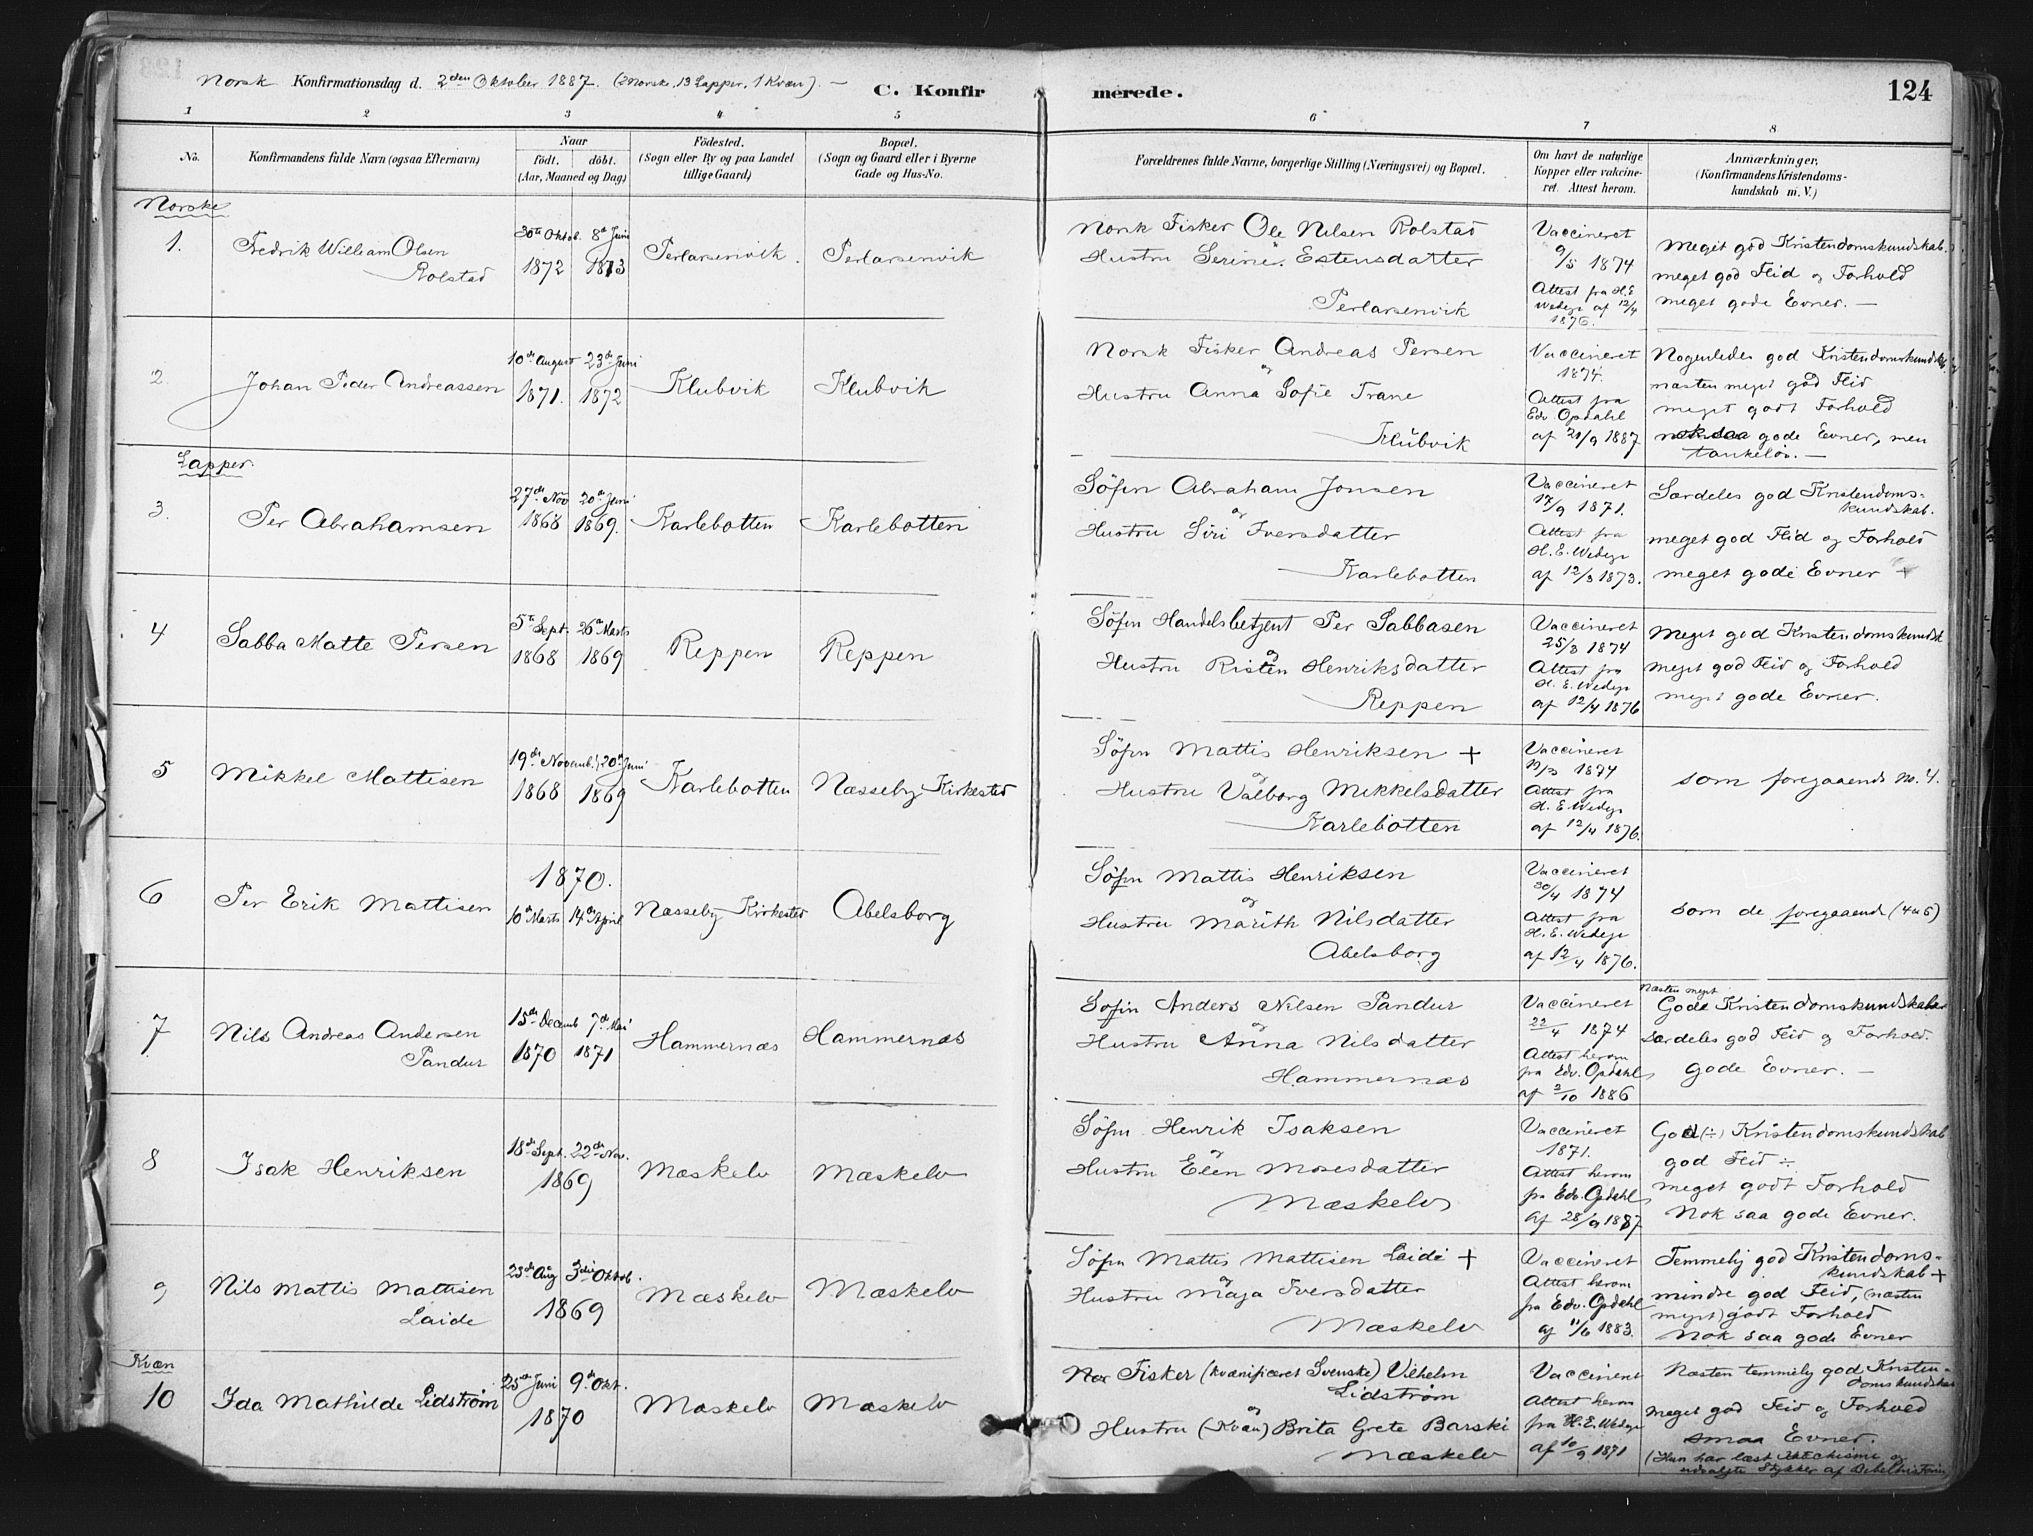 Norsk Konfirmationsdag d. 2den Oktober 1887. (2 Norske, 13 Lapper, 1 Kvæn). —
C. Konfirmerede.
124
1 2 3 4 5 6 7 8
No.
Konfirmandens fulde Navn (ogsaa Efternavn)
Naar
födt. döbt.
(Aar, Maaned og Dag)
Födested.
(Sogn eller By og paa Landet
tillige Gaard)
Bopæl.
(Sogn og Gaard eller i Byerne
Gade og Hus-No.
Forældrenes fulde Navne, borgerlige Stilling (Næringsvei) og Bopæl.
Om havt de naturlige
Kopper eller vakcine-
ret. Attest herom.
Anmærkninger,
(Konfirmandens Kristendoms-
kundskab m. V.)
Norske
1.
Fredrik William Olsen
Rolstad
30te Oktob. 8de Juni
1872 1873
Perlarsenvik.
Perlarsenvik
Norsk Fisker Ole Nilsen Rolstad
Hustru Serine Estensdatter
Perlarsenvik
Vaccineret
9/5 1874
Attest fra H.E.
Wedege af 12/4
1876.
Meget god Kristendomskundskab.
meget god Flid og Forhold
meget gode Evner. —
2.
Johan Peder Andreassen
10de August 23de Juni
1871. 1872
Klubvik
Klubvik
Norsk Fisker Andreas Persen
og
Hustru Anna Sofie Trane
Klubvik
Vaccineret
1874.
Attest fra
Edv. Opdahl
af 21/9 1887
Nogenledes god Kristendomskundsk.
næsten meget god Flid
meget godt Forhold
nok saa gode Evner, men
tankeløs. —
Lapper
3.
Per Abrahamsen
27de Nov 20de Juni
1868 1869.
Karlebotten
Karlebotten
Söfin Abraham Jonsen
og
Hustru Siri Iversdatter
Karlebotten
Vaccineret
17/9 1871.
Attest fra
H. E. Wedege
af 12/3 1873.
Særdeles god Kristendoms-
kundskab.
meget god Flid og Forhold
meget gode Evner +
4
Sabba Matte Persen
5te Sept. 26de Marts
1868 1869
Reppen
Reppen
Söfin Handelsbetjent Per Sabbasen
og
Hustru Risten Henriksdatter
Reppen
Vaccineret
25/3 1874
Attest fra
H. E. Wedege
af 12/4 1876
Meget god Kristendomskundsk
meget god Flid og Forhold
meget gode Evner.
5
Mikkel Mattisen
19de Novemb. 20de Juni
1868 1869
Karlebotten
Næsseby Kirkested
Söfin Mattis Henriksen +
og
Hustru Valborg Mikkelsdatter
Karlebotten
Vaccineret
1874
Attest fra
H. E. Wedege
af 12/4 1876.
som foregaaende N. 4.
6
Per Erik Mattisen
1870.
10de Marts 14de April
Næsseby Kirkested
Abelsborg
Söfin Mattis Henriksen
og
Hustru Marith Nilsdatter
Abelsborg
Vaccineret
30/4 1874
Attest fra
H. E. Wedege
af 12/4 1876.
som de foregaaend (4 o 5)
7
Nils Andreas Andersen
Pandur
15de Decemb 7de Mai
1870 1871
Hammernæs
Hammernæs
Sofin Anders Nilsen Pandur
og
Hustru Anna Nilsdatter
Hammernæs
Vaccineret
22/4 1874
Attest herom
fra Edv. Opdahl
af 2/10 1886
Næsten meget
Gode Kristendomskundskaber
Særdeles god Flid og Forhold.
Gode Evner. —
8
Isak Henriksen
18de Sept. 22de Nov.
1869
Mæskelv
Mæskelv
Söfin Henrik Isaksen
og
Hustru Elen Mosesdatter
Mæskelv
Vaccineret
1871.
Attest herom
fra Edv. Opdahl
af 28/9 1887
God (÷) Kristendomskundskab
god Flid ÷
meget godt Forhold
Nok saa gode Evner.
9
Nils Mattis Mattisen
Laide
23de Aug 3die Oktob.
1869
Mæskelv
Mæskelv
Söfin Mattis Mattisen Laide +
og
Hustru Maja Iversdatter
Mæskelv
Vaccineret
Attest herom
fra Edv. Opdahl
af 11/6 1883.
Temmelig god Kristendoms-
kundskab +
mindre god Flid, (næsten
meget) godt Forhold
Nok saa gode Evner
Kvæn
10
Ida Mathilde Lidström
25de Juni 9de Okt.
1870
Mæskelv
Mæskelv
Fisker (kvænificeret Svenske) Vilhelm
Lidström
og
Hustru (Kvæn) Brita Grete Barski
Mæskelv
Vaccineret
Attest herom
fra H. E. Wedege
af 10/9 1871
Næsten temmelig god Kristen-
domskundskab
Meget god Flid og Forhold
smaa Evner.
(Hun har læst Katekisme og
udvalgte Stykker af Bibelhistorien)